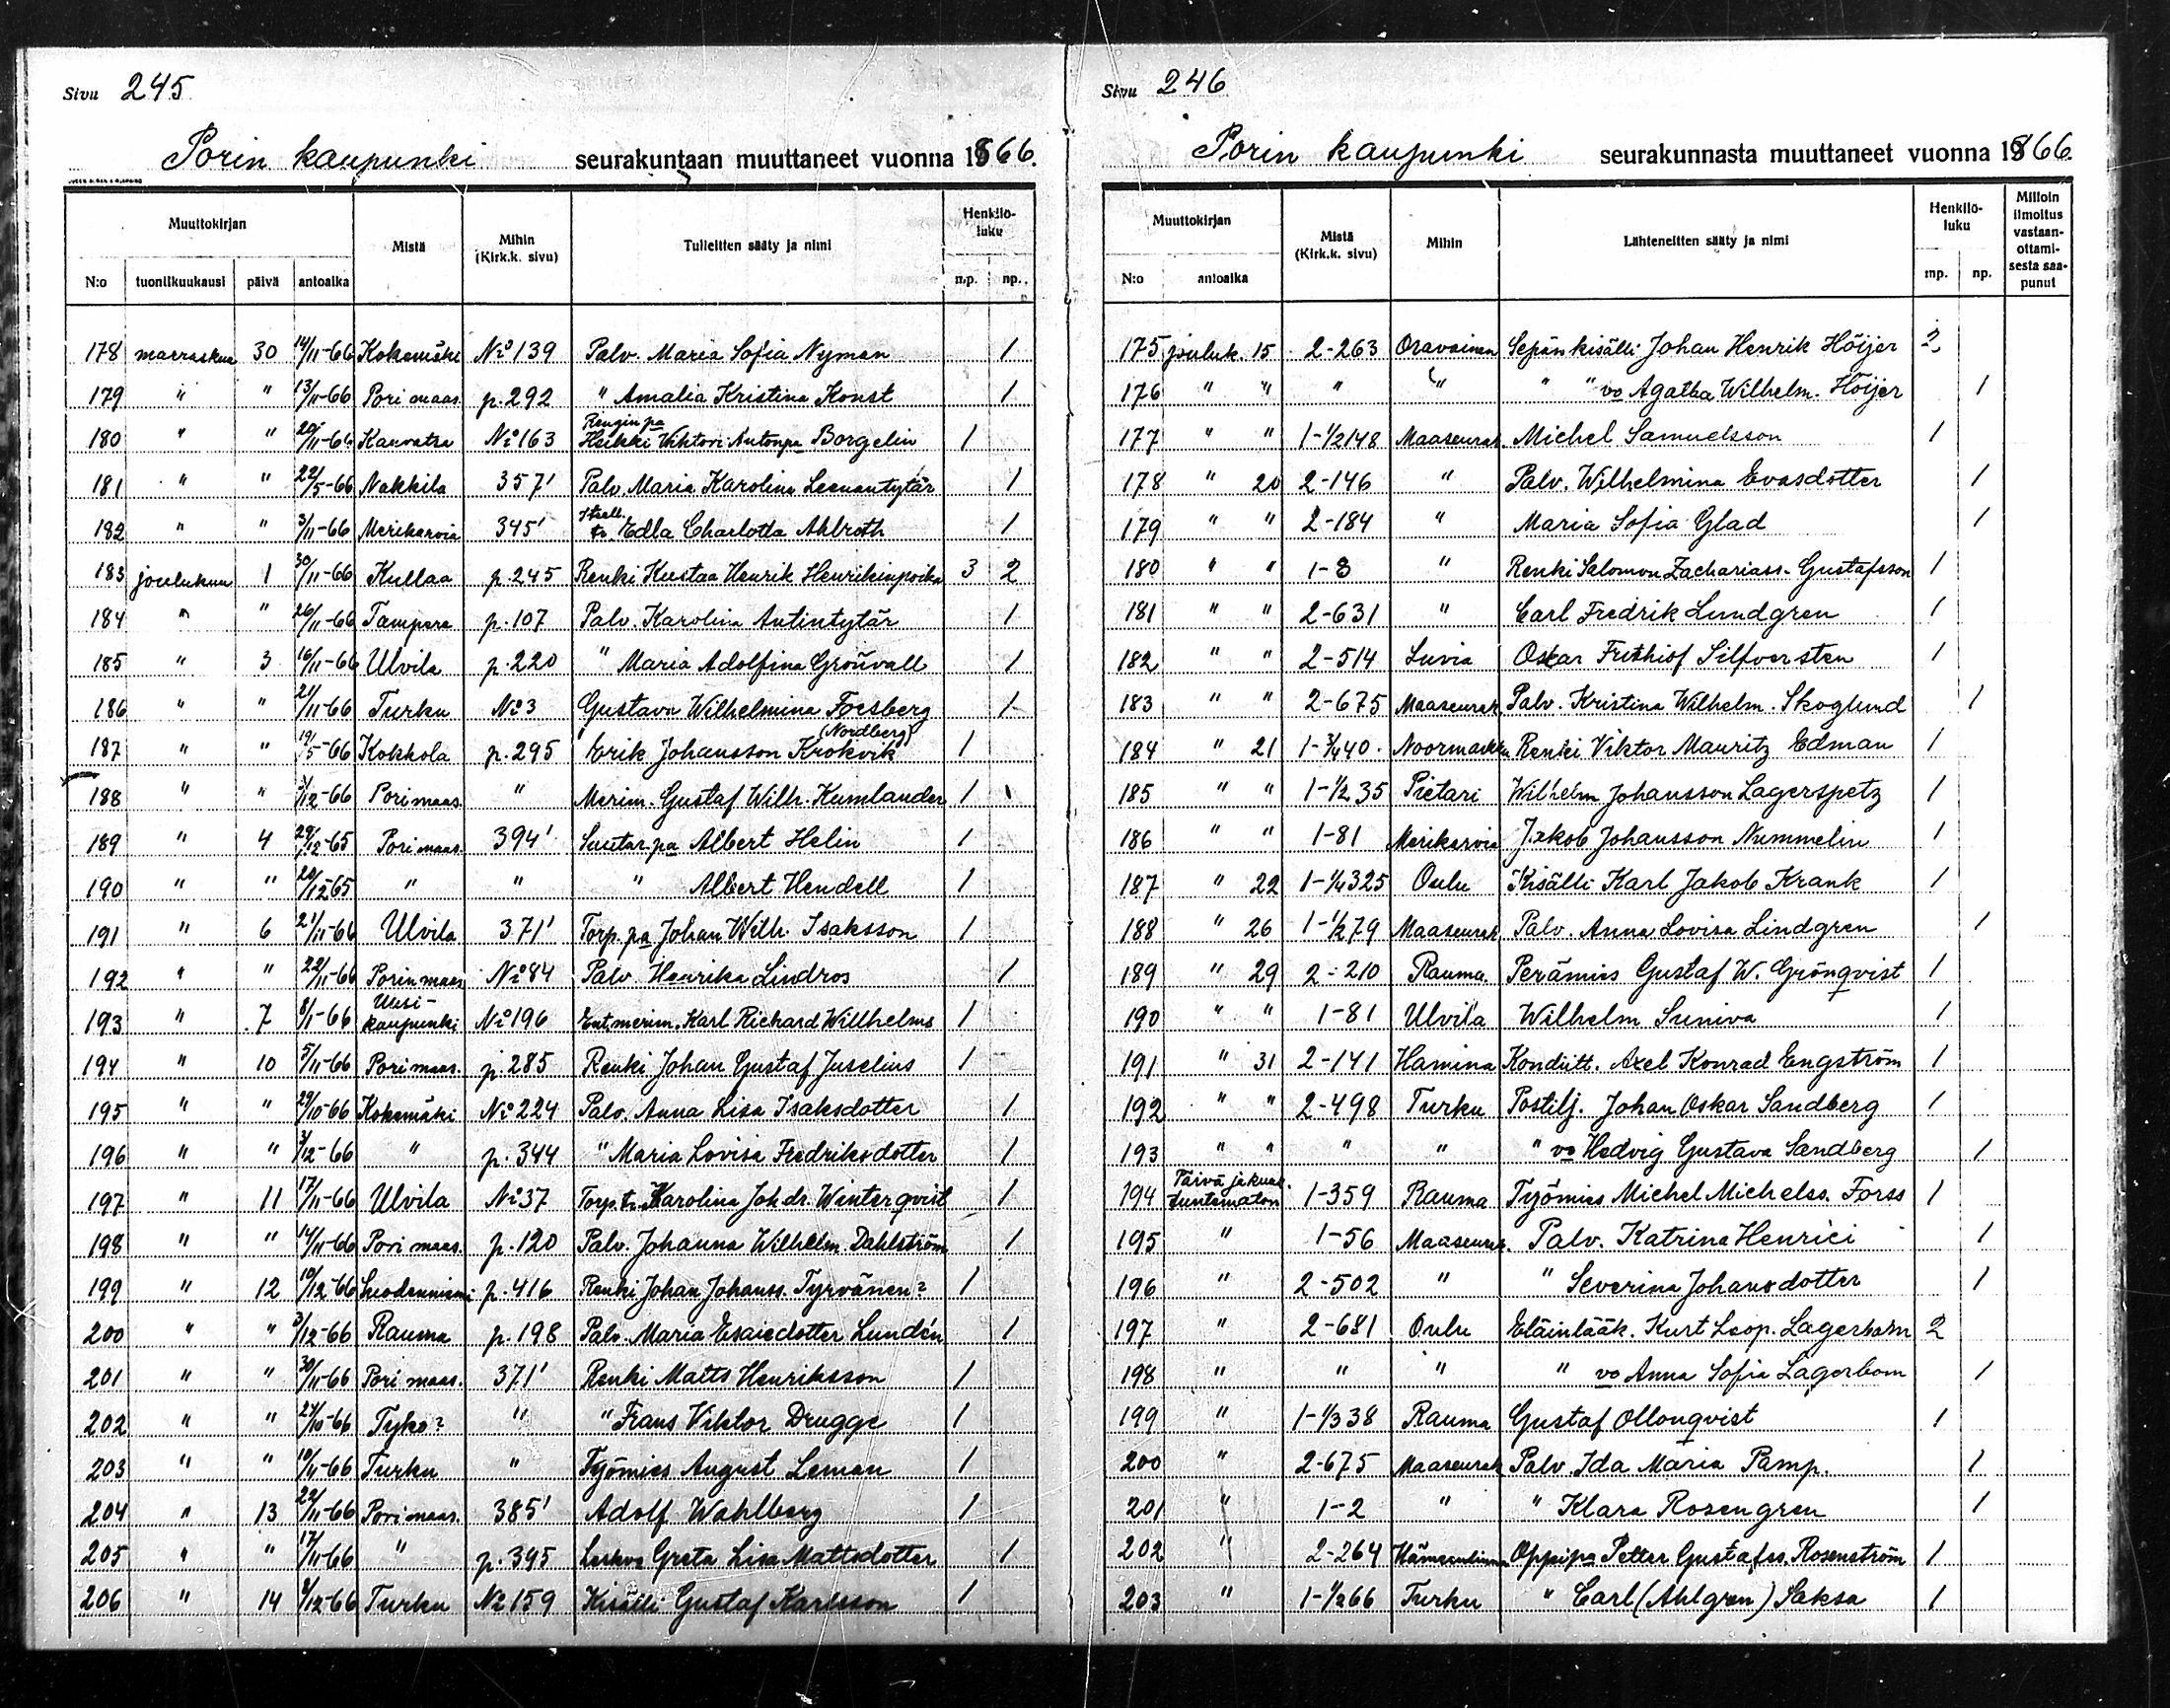 Sivu 245
Porin kaupunki seurakuntaan muuttaneet vuonna 1866.
Muuttokirjan Mistä Mihin (Kirk.k. sivu) Tulleitten sääty ja nimi Henkilö-luku
N:o tuontikuukausi päivä antoaika m.p. np.
178 marraskuu 30 14/11-66 Kokemäki No 139 Palv. Maria Sofia Nyman 1
179 " " 13/11-66 Pori maas. p. 292 " Amalia Kristina Konst 1
180 " " 20/11-66 Kauvatsa No 163 Rengin pa Heikki Vihtori Antonpa Borgelin 1
181 " " 22/5-66 Nakkila 357' Palv. Maria Karolina Leenantytär 1
182 " " 3/11-66 Merikarvia 345' Itsell. tr. Edla Charlotta Ahlroth 1
183 joulukuu 1 30/11-66 Kullaa p. 245 Renki Kustaa Henrik Henrikinpoika 3 2
184 " " 26/11-66 Tampere p. 107 Palv. Karolina Antintytär 1
185 " 3 16/11-66 Ulvila p. 220 " Maria Adolfina Grönvall 1
186 " " 21/11-66 Turku No 3 Gustava Wilhelmina Forsberg 1
187 " " 19/5-66 Kokkola p. 295 Erik Johansson Krokvik (Nordberg) 1
188 " " 3/12-66 Pori maas. " Merim. Gustaf Wilh. Kumlander 1
189 " 4 29/12-65 Pori maas. 394' Suutar.pa Albert Helin 1
190 " " 20/12-65 " " " Albert Hendell 1
191 " 6 21/11-66 Ulvila 371' Torp. pa Johan Wilh. Isaksson 1
192 " " 22/11-66 Porin maas No 84 Palv. Henrika Lindros 1
193 " 7 8/1-66 Uusi-kaupunki No 196 Ent. merim. Karl Richard Willhelms 1
194 " 10 5/11-66 Pori maas. p. 285 Renki Johan Gustaf Juselius 1
195 " " 29/10-66 Kokemäki No 224 Palv. Anna Lisa Isaksdotter 1
196 " " 3/12-66 " p. 344 " Maria Lovisa Fredriksdotter 1
197 " 11 17/11-66 Ulvila No 37 Torp. tr. Karolina Joh.dr. Winterqvist 1
198 " " 14/11-66 Pori maas. p. 120 Palv. Johanna Wilhelm. Dahlström 1
199 " 12 10/12-66 Suodenniemi p. 416 Renki Johan Johanss. Tyrvänen? 1
200 " " 3/12-66 Rauma p. 198 Palv. Maria Esaiedotter Lundén 1
201 " " 30/11-66 Pori maas. 371' Renki Matts Henriksson 1
202 " " 24/10-66 Tyko? " " Frans Viktor Drugge 1
203 " " 10/11-66 Turku " Työmies August Leman 1
204 " 13 22/11-66 Pori maas. 385' Adolf Wahlberg 1
205 " " 17/11-66 " p. 395 Leskivo Greta Lisa Mattsdotter 1
206 " 14 4/12-66 Turku No 159 Kisälli Gustaf Karlsson 1
Sivu 246
Porin kaupunki seurakunnasta muuttaneet vuonna 1866.
Muuttokirjan Mistä (Kirk.k. sivu) Mihin Lähteneitten sääty ja nimi Henkilö-luku Milloin ilmoitus vastaan-ottami-sesta saa-punut
N:o antoaika mp. np.
175 jouluk. 15 2-263 Oravainen Sepän kisälli Johan Henrik Höijer 2
176 " " " " " " vo Agatha Wilhelm. Höijer 1
177 " " 1-1/2 148 Maaseurak. Michel Samuelsson 1
178 " 20 2-146 " Palv. Wilhelmina Evasdotter 1
179 " " 2-184 " Maria Sofia Glad 1
180 " " 1-3 " Renki Salomon Zachariass. Gustafsson 1
181 " " 2-631 " Carl Fredrik Lundgren 1
182 " " 2-514 Luvia Oskar Frithiof Silfversten 1
183 " " 2-675 Maaseurak. Palv. Kristina Wilhelm. Skoglund 1
184 " 21 1-3/4 40. Noormarkku Renki Viktor Mauritz Edman 1
185 " " 1-1/2 35 Pietari Wilhelm Johansson Lagerspetz 1
186 " " 1-81 Merikarvia Jakob Johansson Nummelin 1
187 " 22 1-1/4 325 Oulu Kisälli Karl Jakob Krank 1
188 " 26 1-1/2 79 Maaseurak. Palv. Anna Lovisa Lindgren 1
189 " 29 2-210 Rauma. Perämies Gustaf W. Grönqvist 1
190 " " 1-81 Ulvila Wilhelm Suniva 1
191 " 31 2-141 Hamina Kondiitt. Axel Konrad Engström 1
192 " " 2-498 Turku Postilj. Johan Oskar Sandberg 1
193 " " " " " vo Hedvig Gustava Sandberg 1
194 Päivä ja kuuk. tuntematon 1-359 Rauma Työmies Michel Michelss. Forss 1
195 " 1-56 Maaseurak. Palv. Katrina Henrici 1
196 " 2-502 " " Severina Johansdotter 1
197 " 2-681 Oulu Eläinlääk. Kurt Leop. Lagerbom 2
198 " " " " vo Anna Sofia Lagerbom 1
199 " 1-1/3 38 Rauma Gustaf Ollonqvist 1
200 " 2-675 Maaseurak Palv. Ida Maria Pamp. 1
201 " 1-2 " " Klara Rosengren 1
202 " 2-264 Hämeenlinna Oppipa Petter Gustafss. Rosenström 1
203 " 1-1/2 66 Turku " Carl (Ahlgren) Saksa 1